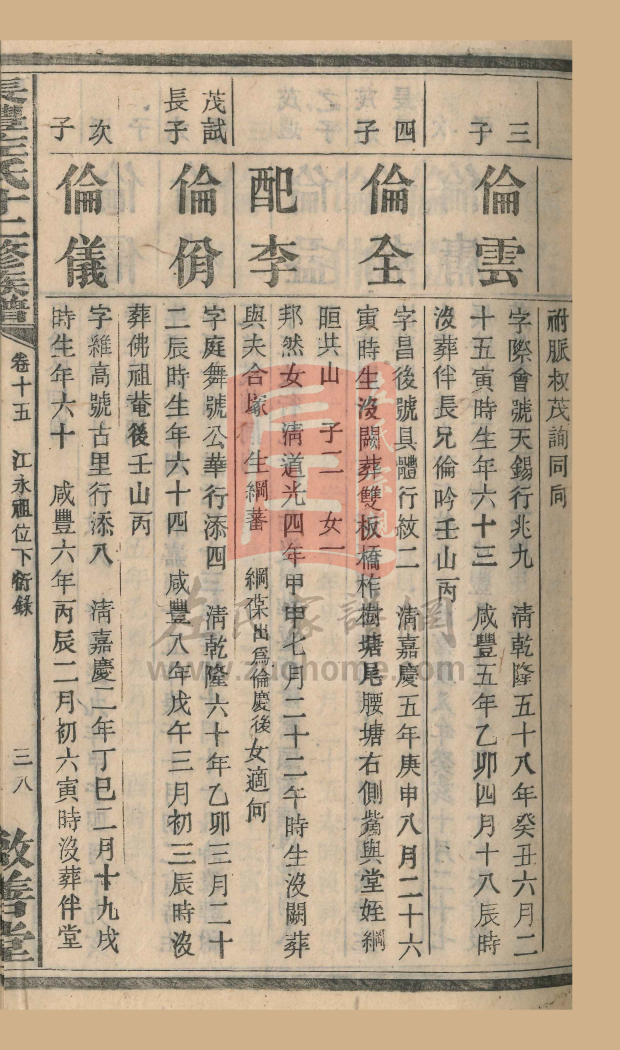 祔脈叔茂詢同向
三子
倫雲
字際會號天錫行兆九 清乾隆五十八年癸丑六月二
十五寅時生年六十三 咸豐五年乙卯四月十八辰時
沒葬伴長兄倫吟壬山丙
四子
倫全
字昌後號具體行紋二 清嘉慶五年庚申八月二十六
寅時生沒闕葬雙板橋柞樹塘尾腰塘右側嘴與堂姪綱
晅共山 子二 女一
配李
邦然女 清道光四年甲申七月二十二午時生沒闕葬
與夫合塚 生綱蕃 綱 出為倫慶後女適何
茂試長子
倫佾
字庭舞號公華行添四 清乾隆六十年乙卯三月二十
二辰時生年六十四 咸豐八年戊午三月初三辰時沒
葬佛祖菴後壬山丙
次子
倫儀
字雒高號古里行添八 清嘉慶二年丁巳二月十九戌
時生年六十 咸豐六年丙辰二月初六寅時沒葬伴堂
長豐左氏十二修族譜
卷十五 江永祖位下衍錄
三八
敘善堂
左氏家譜網
www.zuohome.com